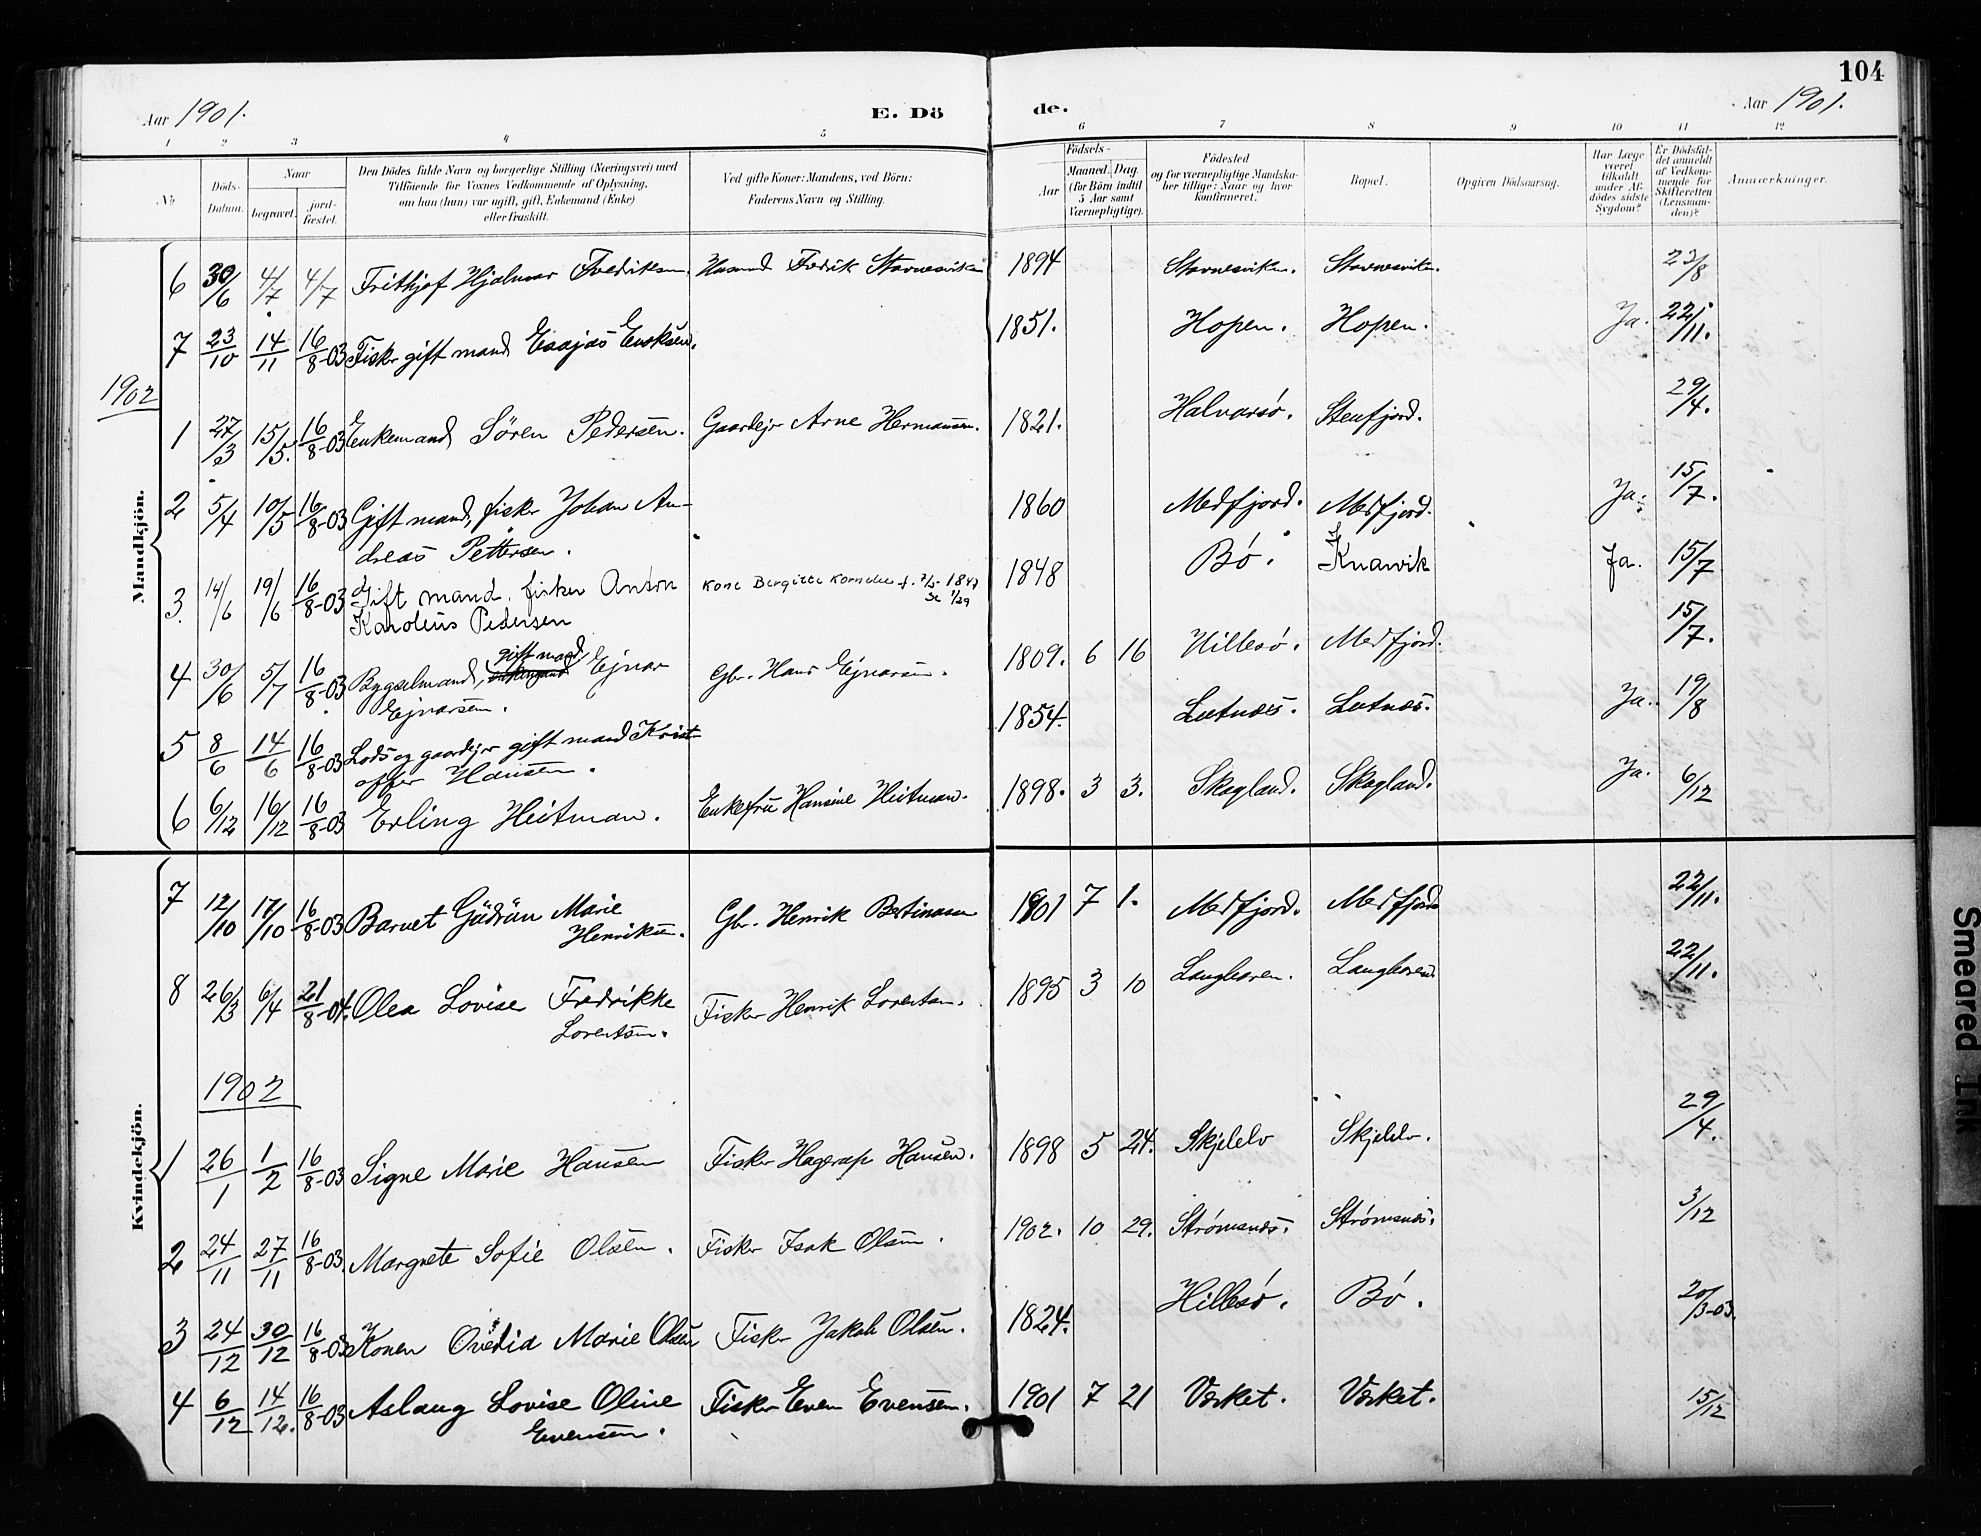 104
Aar 1901.
E. Dö
de.
Aar 1901.
1 2 3 4 5 6 7 8 9 10 11 12
No
Döds-Datum.
Naar
begravet.
jord-fæstet.
Den Dödes fulde Navn og borgerlige Stilling (Næringsvei) med
Tilföiende for Voxnes Vedkommende af Oplysning,
om han (hun) var ugift, gift, Enkemand (Enke)
eller fraskilt.
Ved gifte Koner: Mandens, ved Börn:
Faderens Navn og Stilling.
Födsels-
Aar
Maaned. Dag.
(for Börn indtil
5 Aar samt
Værnepligtige).
Födested
og for værnepligtige Mandska-
ber tillige: Naar og hvor
konfirmeret.
Bopæl.
Opgiven Dödsaarsag.
Har Læge
været
tilkaldt
under Af-
dödes sidste
Sygdom?
Er Dödsfal-
det anmeldt
af Vedkom-
mende for
Skifteretten
(Lensman-
den)?
Anmærkninger.
Mandkjön.
6 30/6 4/7 4/7 Frithjof Hjalmar Fredriksen. Husmand Fredrik Stavnesviken 1894 Stavnesviken. Stavnesviken. 23/8
7 23/10 14/11 16/8-03 Fisker gift mand Esajas Enoksen. 1851. Hopen. Hopen. Ja. 22/11.
1902
1 27/3 15/5. 16/8-03 Enkemand Sören Pedersen. Gaardejer Arne Hermansen. 1821. Halvarsö. Stenfjord. 29/4.
2 5/4 10/5 16/8-03 Gift mand, fisker Johan An-
dreas Pettersen. 1860 Medfjord. Medfjord. Ja. 15/7.
3. 14/6 19/6 16/8-03 Gift mand. fisker Anton
Karolius Pedersen Kone Bergitte Kornelie f. 1847 1848 Bö. Knarvik Ja. 15/7
4 30/6 5/7 16/8-03 Bygselmand, gift mand Ejnar
Ejnarsen. Gbr. Hans Ejnarsen. 1809. 6 16 Hillesö. Medfjord. 15/7.
5 8/6 14/6 16/8-03 Lods og gaardejer gift mand Krist-
offer Hansen. 1854. Lutnæs. Lutnæs. Ja. 19/8
6 6/12 16/12 16/8-03 Erling Heitman. Enkefru Hansine Heitman. 1898. 3 3. Skogland. Skogland. Ja. 6/12
Kvindekjön.
7 12/10 17/10 16/8-03 Barnet Gudrun Marie
Henriksen. Gbr. Henrik Bertinasen 1901 7 1. Medfjord. Medfjord 22/11.
8 26/3 6/4 21/8-04. Olea Lovise Fredrikke
Lorentsen. Fisker Henrik Lorentsen. 1895 3 10 Langhavn. Langhavn 22/11.
1902
1 26/1 1/2 16/8-03 Signe Marie Hansen Fisker Hagerup Hansen. 1898 5 24. Skjelelv Skjelelv. 29/4.
2 24/11 27/11 16/8-03. Margrete Sofie Olsen. Fisker Isak Olsen. 1902. 10 29. Strömsnæs. Strömsnæs. 3/12
3 24/12 30/12 16/8-03 Konen Ovedia Marie Olsen Fisker Jakob Olsen. 1824. Hillesö. Bö. 20/3-03.
4 6/12 14/12. 16/8-03 Aslaug Lovise Oline
Evensen. Fisker Even Evensen. 1901 7 21 Værket. Værket. 15/12
Smeared Ink